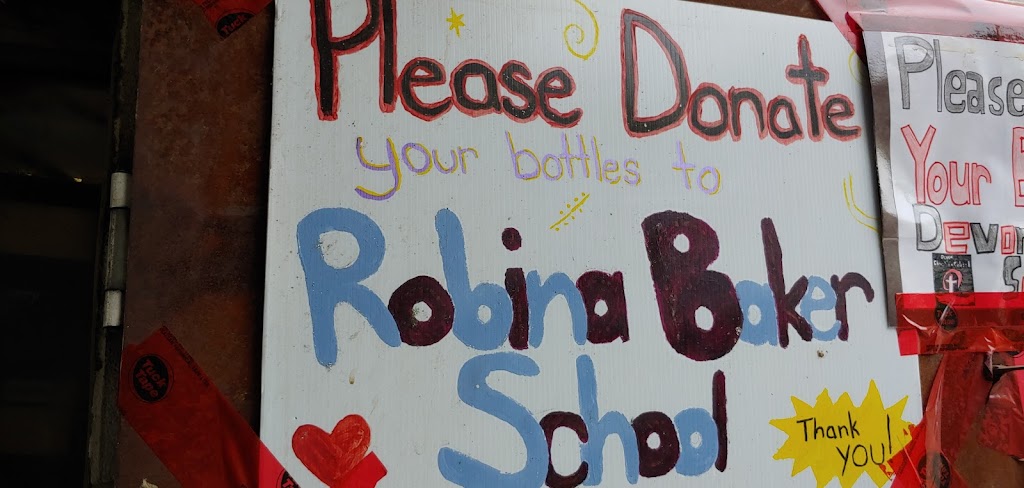 Please Donate
your bottles to
Robina Baker
School
Thank
you!
Please
Your